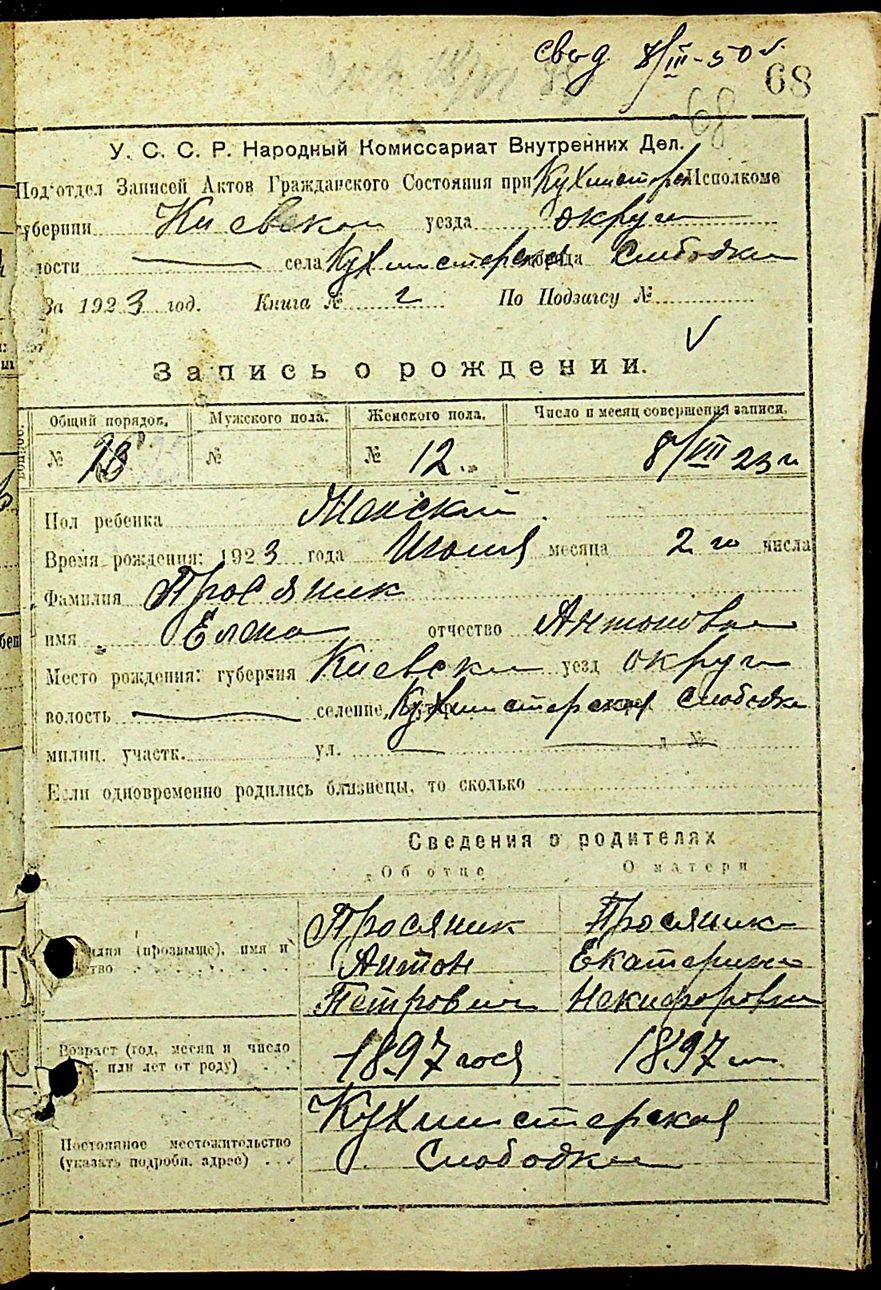 свид 8/III-50 г.
68
68
У. С. С. Р. Народный Комиссариат Внутренних Дел.
Под'отдел Записей Актов Гражданского Состояния при Кухмистерс Исполкоме
губернии Киевской уезда округи
лости — села Кухмистерская города Слободки
За 1923 год. Книга № 2 По Подзагсу №
V
Запись о рождении.
Общий порядок. Мужского пола. Женского пола. Число и месяц совершения записи.
№ № № 12. 8/VIII 23 г
Пол ребенка Женский.
Время рождения: 1923 года Июля месяца 2 го числа
Фамилия Просяник
имя Елена отчество Антоновна
Место рождения: губерния Киевск уезд округи
волость — селение, Кухмистерская Слободка
милиц. участк. ул. — д №
Если одновременно родились близнецы, то сколько
Сведения о родителях
Об отце О матери
Просяник Просяник
илия (прозвыще), имя и Антон Екатерина
ство Петрович Некифоровна
Возраст (год, месяц и число 1897 года 1897 г.
или лет от роду)
Кухмистерская
Постоянное местожительство Слободка
(указать подробн. адрес)